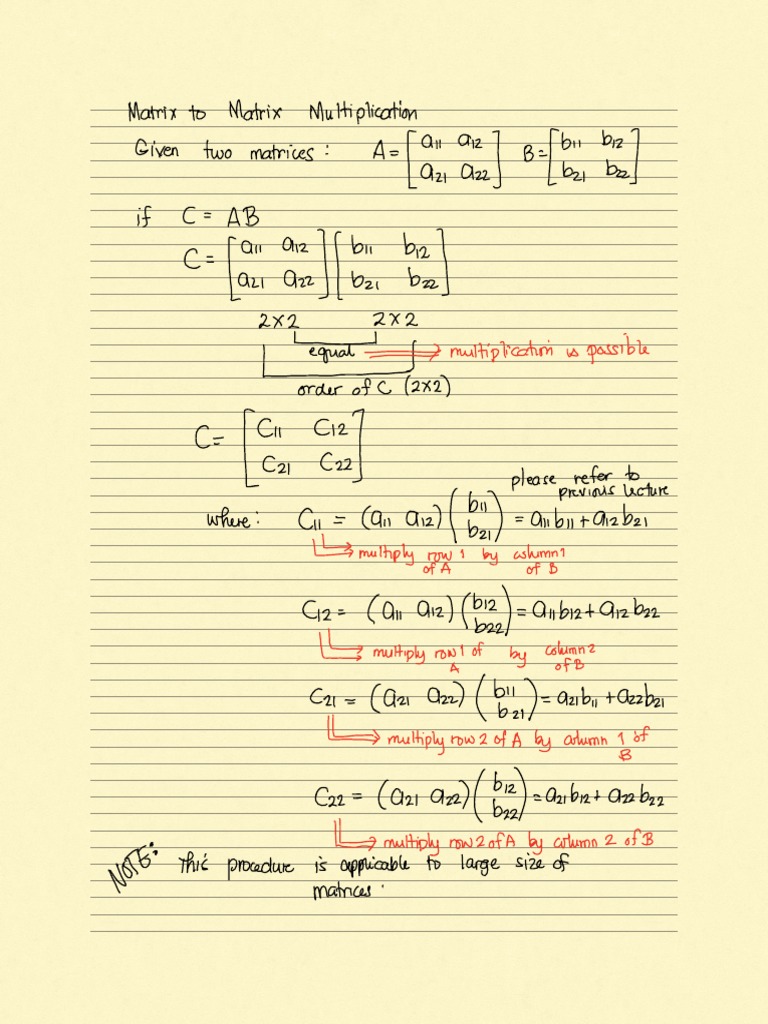 Matrix to Matrix Multiplication
Given two matrices: A = [a11 a12 B = [b11 b12
a21 a22] b21 b22]
if C = AB
C = [a11 a12 [b11 b12
a21 a22] b21 b22]
2×2 2×2
equal multiplication is possible
order of C (2×2)
C = [C11 C12
C21 C22]
please refer to
previous lecture
where: C11 = (a11 a12) (b11 b21) = a11b11 + a12b21
multiply row 1 by column 1
of A of B
C12 = (a11 a12) (b12 b22) = a11b12 + a12b22
multiply row 1 of by column 2
A of B
C21 = (a21 a22) (b11 b21) = a21b11 + a22b21
multiply row 2 of A by column 1 of
B
C22 = (a21 a22) (b12 b22) = a21b12 + a22b22
multiply row 2 of A by column 2 of B
NOTE: This procedure is applicable to large size of
matrices.